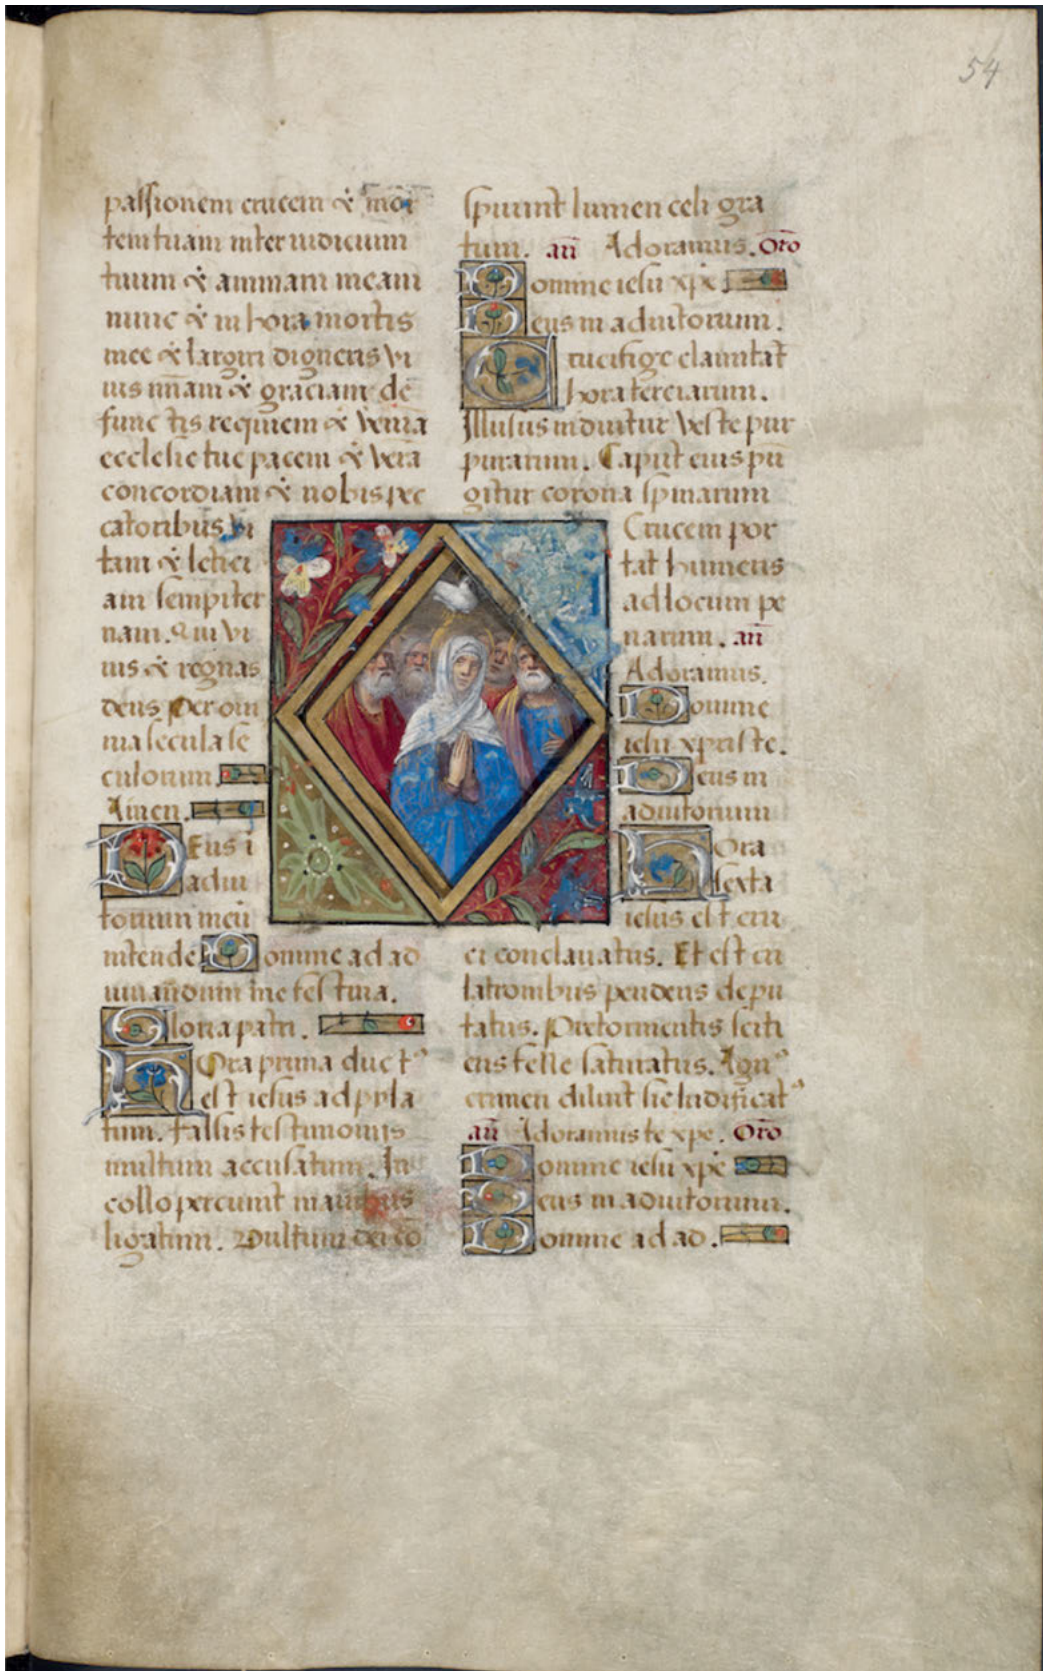 54
passionem crucem & mor
tem tuam inter iudicium
tuum & animam meam
nunc & in hora mortis
mee & largiri digneris vi
uis mīam & graciam de
functis requiem & veniā
ecclesie tue pacem & verā
concordiam & nobis pec
catoribus vi
tam & letici
am sempiter
nam. Qui vi
uis & regnas
deus Per om
nia secula se
culorum
Amen.
Deus ī
adiu
torium meū
intende Domine ad ad
iuuandum me festina.
Gloria patri.
Hora prima duct⁹
est iesus ad pyla
tum. falsis testimoniis
multum accusatum. In
collo percunt manibus
ligatum. Vultum dei cō
spuunt lumen celi gra
tum. añ Adoramus. Oro
Domine iesu xp̄e
Deus in adiutorium.
Crucifige clamitāt
hora terciarum.
Illusus induitur veste pur
purarum. Caput eius pū
gitur corona spinarum
Crucem por
tat humeris
ad locum pe
narum. añ
Adoramus.
Domine
iesu xpriste.
Deus in
adiutorium
Hora
sexta
iesus est cru
ci conclauatus. Et est cū
latronibus pendens depu
tatus. Pretormentis siti
ens felle saturatus. Agn⁹
crimen diluit sic ludificat⁹
añ Adoramus te xpe. Oro
Domine iesu xpē
Deus in adiutorium.
Domine ad ad.